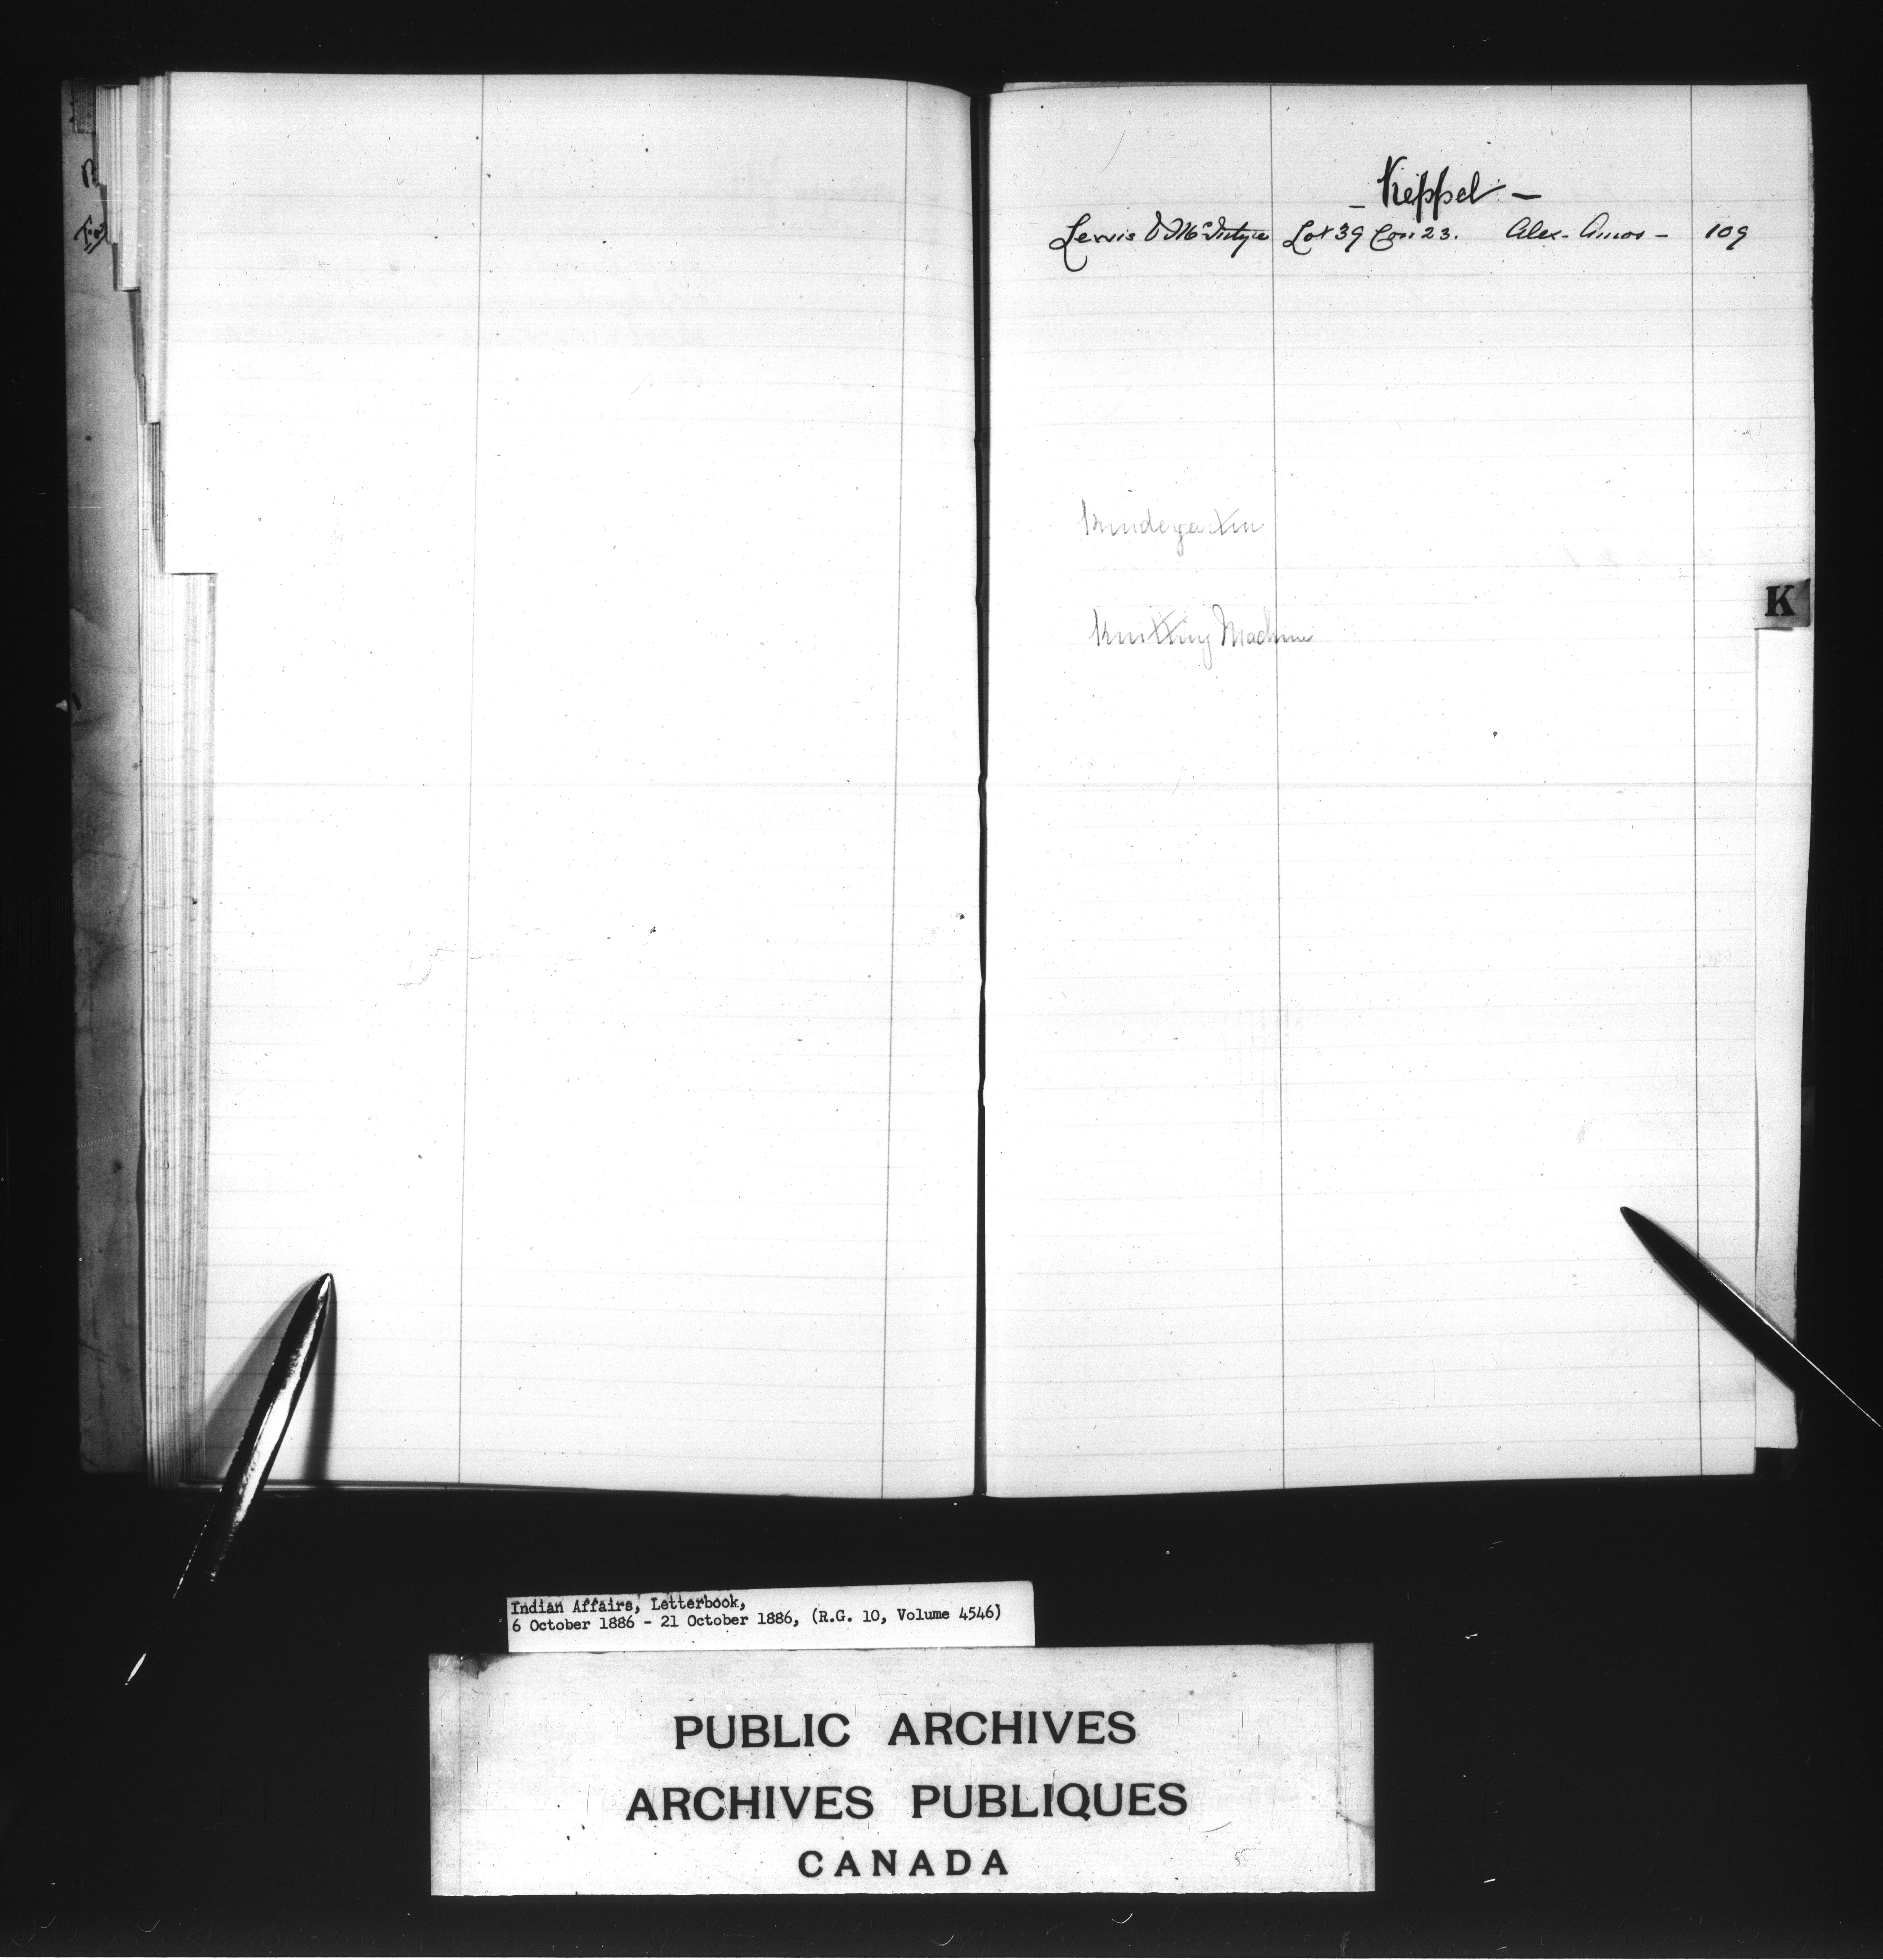 - Keppel -
Lewis & McIntyre Lot 39 Con 23. Alex. Amos - 109
Kindegarten
K
Knitting Machine
Indian Affairs, Letterbook,
6 October 1886 - 21 October 1886, (R.G. 10, Volume 4546)
PUBLIC ARCHIVES
ARCHIVES PUBLIQUES
CANADA